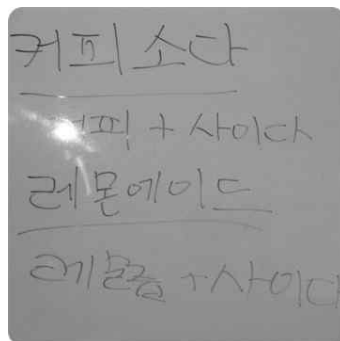 커피소다
커피 + 사이다
레몬에이드
레몬즙 + 사이다